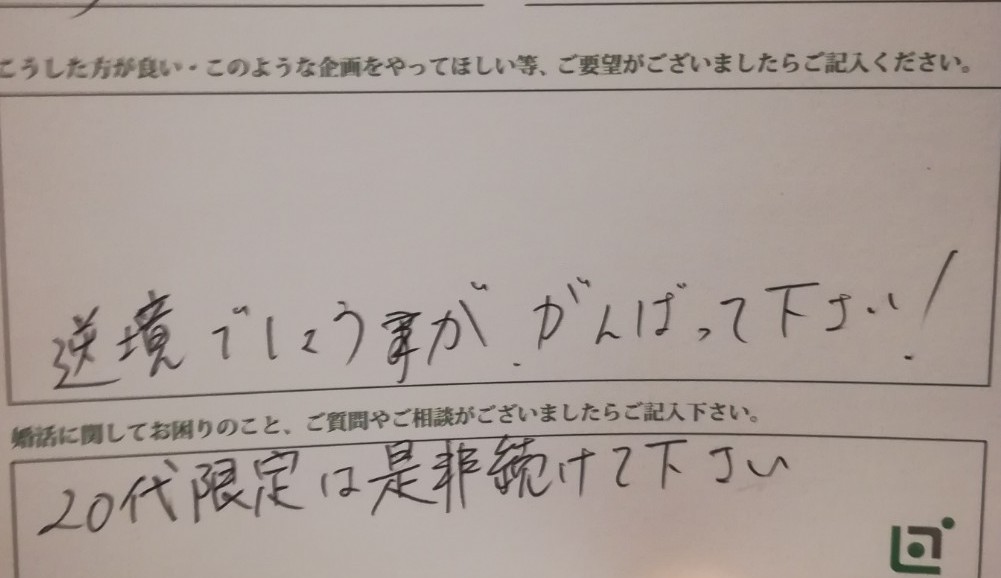 こうした方が良い・このような企画をやってほしい等、ご要望がございましたらご記入ください。
逆境でしょうが がんばって下さい!
婚活に関してお困りのこと、ご質問やご相談がございましたらご記入下さい。
20代限定は是非続けて下さい